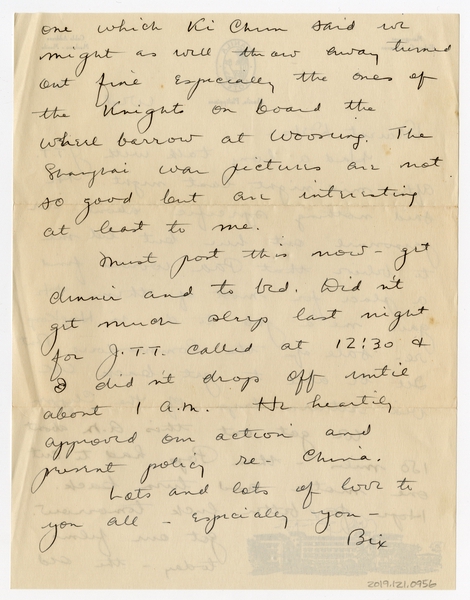 one which Ki Chun said we
might as well throw away turned
out fine especially the ones of
the Knights on board the
wheel barrow at Woosung. The
Shanghai war pictures are not
so good but are interesting
at least to me.
Must post this now - get
dinner and to bed. Didn't
get much sleep last night
for J.T.T. called at 12:30 &
I didn't drop off until
about 1 a.m. He heartily
approved our action and
present policy re - China.
Lots and lots of love to
you all - especially you -
Bix
2019.121.0956